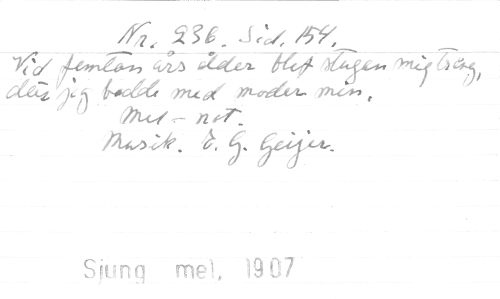 Nr. 236. Sid. 154.
Vid femton års ålder blef stugan mig trång,
där jag bodde med moder min.
Mel-not.
Musik. E. G. Geijer.
Sjung mel. 1907